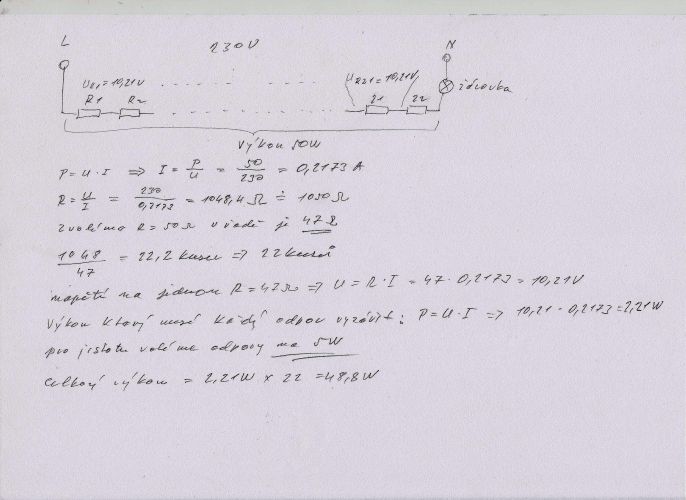 L 230V N
UR1=10,21V URZ1=10,21V
R1 R2 21 22 žárovka
Výkon 50W
P=U·I ⇒ I = P/U = 50/230 = 0,2173 A
R = U/I = 230/0,2173 = 1048,4 Ω ≐ 1050 Ω
zvolíme R=50Ω v řadě je 47Ω
1048/47 = 22,2 kusu ⇒ 22 kusů
napětí na jednom R=47Ω ⇒ U = R·I = 47·0,2173 = 10,21V
Výkon který musí každý odpor vyzářit: P=U·I ⇒ 10,21·0,2173=2,21W
pro jistotu volíme odpory na 5W
Celkový výkon = 2,21W x 22 = 48,8W